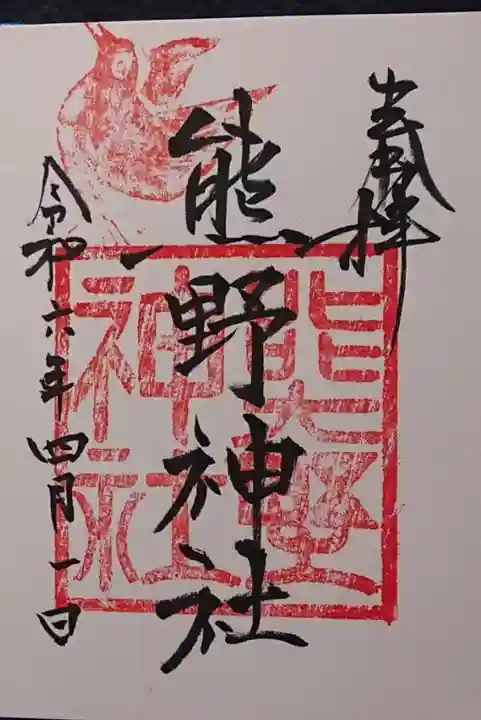 奉拝
熊野神社
令和六年四月一日
熊野神社